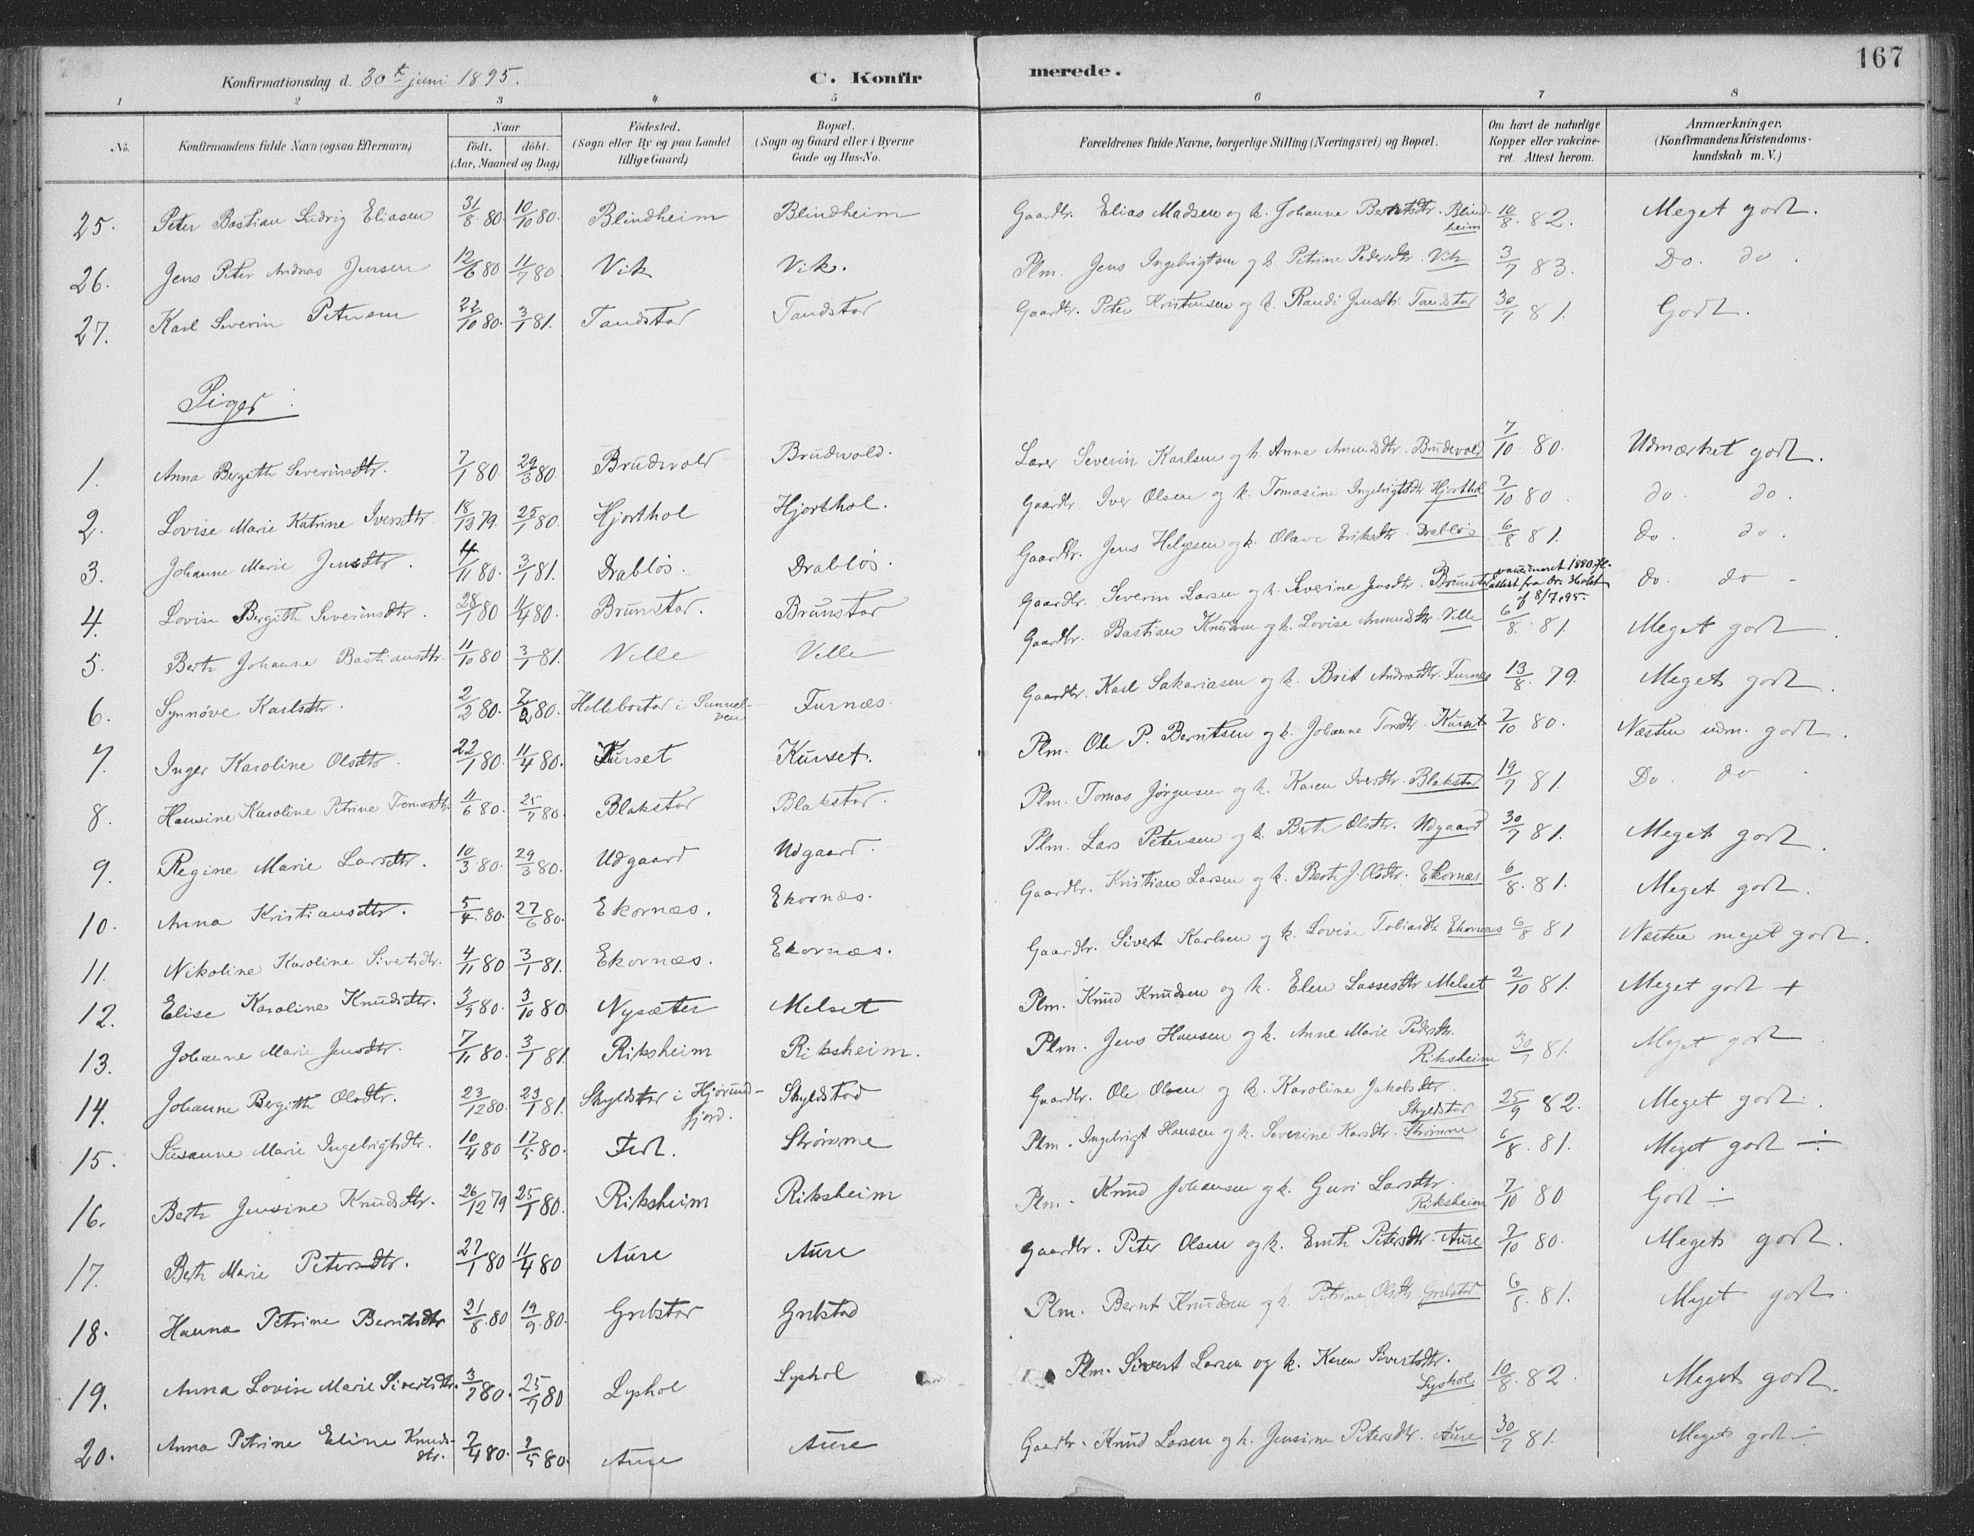 167
Konfirmationsdag d. 30te juni 1895. C. Konfirmerede.
1 2 3 4 5 6 7 8
No. Konfirmandens fulde Navn (ogsaa Efternavn) Naar født. døbt. (Aar, Maaned og Dag) Fødested. (Sogn eller By og paa Landet tillige Gaard) Bopæl. (Sogn og Gaard eller i Byerne Gade og Hus-No. Forældrenes fulde Navne, borgerlige Stilling (Næringsvei) og Bopæl. Om havt de naturlige Kopper eller vakcineret. Attest herom. Anmærkninger. (Konfirmandens Kristendomskundskab m. V.)
25. Peter Bastian Ludvig Eliasen 31/8 80 10/10 80. Blindheim Blindheim Gaardbr. Elias Madsen og k. Johanne Berntsdtr. Blindheim 10/8. 82. Meget godt.
26. Jens Peter Andreas Jensen 12/6 80 11/7 80. Vik Vik. Plm. Jens Ingebrigtsen og k. Petrine Pedersdtr. Vik 3/7 83. Do. do.
27. Karl Severin Petersen 22/10 80. 3/1 81. Tandstad Tandstad Gaardbr. Peter Kristensen og k. Randi Jensdtr. Tandstad 30/7 81. Godt.
Piger
1. Anna Bergitth Severinsdtr. 7/1 80 29/3 80. Brudevold Brudevold. Lærer Severin Karlsen og k. Anne Amundsdtr. Brudevold 7/10. 80. Udmærket godt.
2. Lovise Marie Katrine Iversdtr. 18/12 79. 25/1 80. Hjorthol Hjorthol. Gaardbr. Iver Olsen og k. Tomasine Ingebrigtsdtr. Hjorthol 7/10 80. do. do.
3. Johanne Marie Jensdtr. 4/11 80. 3/1 81. Drabløs. Drabløs. Gaardbr. Jens Helgesen og k. Olave Eriksdtr. Drabløs 6/8 81. do. do.
4. Lovise Bergith Severinsdtr. 28/1 80 4/4 80. Brunstad. Brunstad Gaardbr. Severin Larsen og k. Severine Jensdtr. Brunstad vaccineret 1880 attest fra Dr. Holst af 8/7.95. do. do
5. Berte Johanne Bastiansdtr. 11/10 80 3/1 81. Velle Velle Gaardbr. Bastian Knudsen og k. Lovise Amundsdtr. Velle 6/8. 81. Meget godt.
6. Synnøve Karlsdtr. 2/2 80. 7/2 80. Hellebostad i Sunnelven Furnæs. Gaardbr. Karl Sakariasen og k. Brit Andreasdtr. Furnæs 13/8. 79. Meget godt.
7. Inger Karoline Olsdtr. 22/1 80. 11/4 80. Kurset Kurset. Plm. Ole P. Berntsen og k. Johanne Tomsdtr. Kurset 7/10 80. Næsten udm. godt.
8. Hansine Karoline Petrine Tomasdtr. 11/6 80. 25/7 80. Blakstad Blakstad. Plm. Tomas Jørgensen og k. Karen Iversdtr. Blakstad 19/7 81. Do. do
9. Regine Marie Larsdtr. 10/3 80. 29/3 80. Udgaard Udgaard. Plm. Lars Petersen og k. Berte Olsdtr. Udgaard 30/7 81. Meget godt.
10. Anna Kristiansdtr. 5/4 80. 27/6 80. Ekornæs. Ekornæs. Gaardbr. Kristian Larsen og k. Berte J. Olsdtr. Ekornæs 6/8. 81. Meget godt.
11. Nikoline Karoline Sivertsdtr. 4/11 80 3/1 81. Ekornæs. Ekornæs. Gaardbr. Sivert Karlsen og k. Lovise Tobiasdtr. Ekornæs 6/8 81 Næsten meget godt.
12. Elise Karoline Knudsdtr. 3/9 80. 3/10 80. Nysæter Melset Plm. Knud Knudsen og k. Elen Lassesdtr. Melset 2/10 81. Meget godt +
13. Johanne Marie Jensdtr. 7/11 80. 3/1 81. Riksheim Riksheim. Plm. Jens Hansen og k. Anne Marie Pedersdtr. Riksheim 30/7 81. Meget godt.
14. Johanne Bergitth Olsdtr. 23/12 80. 23/1 81. Skyldstad i Hjørundfjord. Skyldstad Gaardbr. Ole Olsen og k. Karoline Jakobsdtr. Skyldstad 25/9 82. Meget godt.
15. Susanne Marie Ingebrigtsdtr. 10/4 80 17/5 80. Fet. Strømme Plm. Ingebrigt Hansen og k. Severine Karsdtr. Strømme 6/8. 81. Meget godt ÷
16. Berte Jensine Knudsdtr. 26/12 79 25/1 80. Riksheim Riksheim Plm. Knud Johansen og k. Guri Larsdtr. Riksheim 7/10 80 Godt ÷
17. Berte Marie Petersdtr. 27/1 80 11/4 80 Aure Aure Gaardbr. Peter Olsen og k. Emte Petersdtr. Aure 7/10 80. Meget godt.
18. Hanna Petrine Berntsdtr. 21/8 80 19/9 80. Grebstad Grebstad Plm. Bernt Knudsen og k. Petrine Olsdtr. Grebstad 6/8. 81. Meget godt.
19. Anna Lovise Marie Sivertsdtr. 3/7 80. 25/7 80 Lyshol Lyshol Plm. Sivert Larsen og k. Karen Sivertsdtr. Lyshol 10/8. 82. Meget godt.
20. Anna Petrine Eline Knudsdtr. 7/4 80. 2/5 80. Aure Aure Gaardbr. Knud Larsen og k. Jensine Petersdtr. Aure 30/7 81. Meget godt ÷